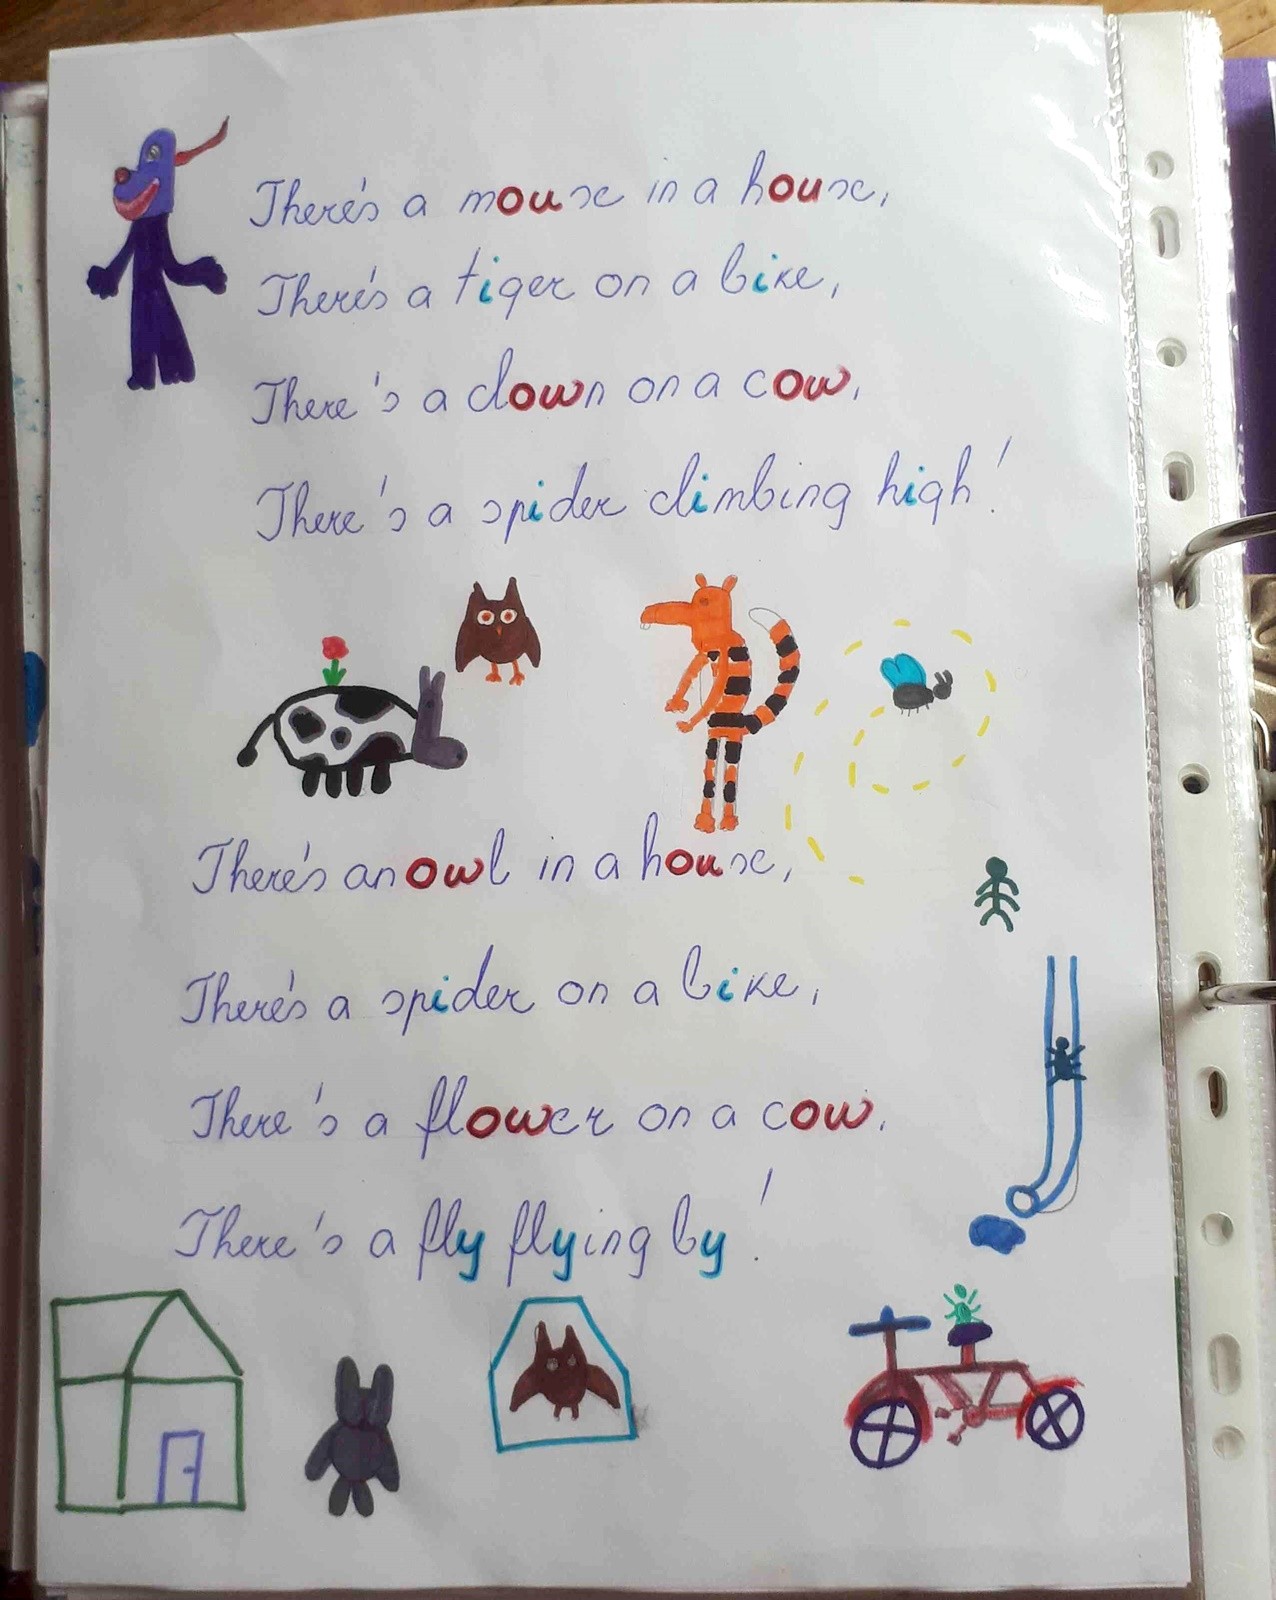 There's a mouse in a house,
There's a tiger on a bike,
There's a clown on a cow,
There's a spider climbing high!
There's an owl in a house,
There's a spider on a bike,
There's a flower on a cow,
There's a fly flying by!